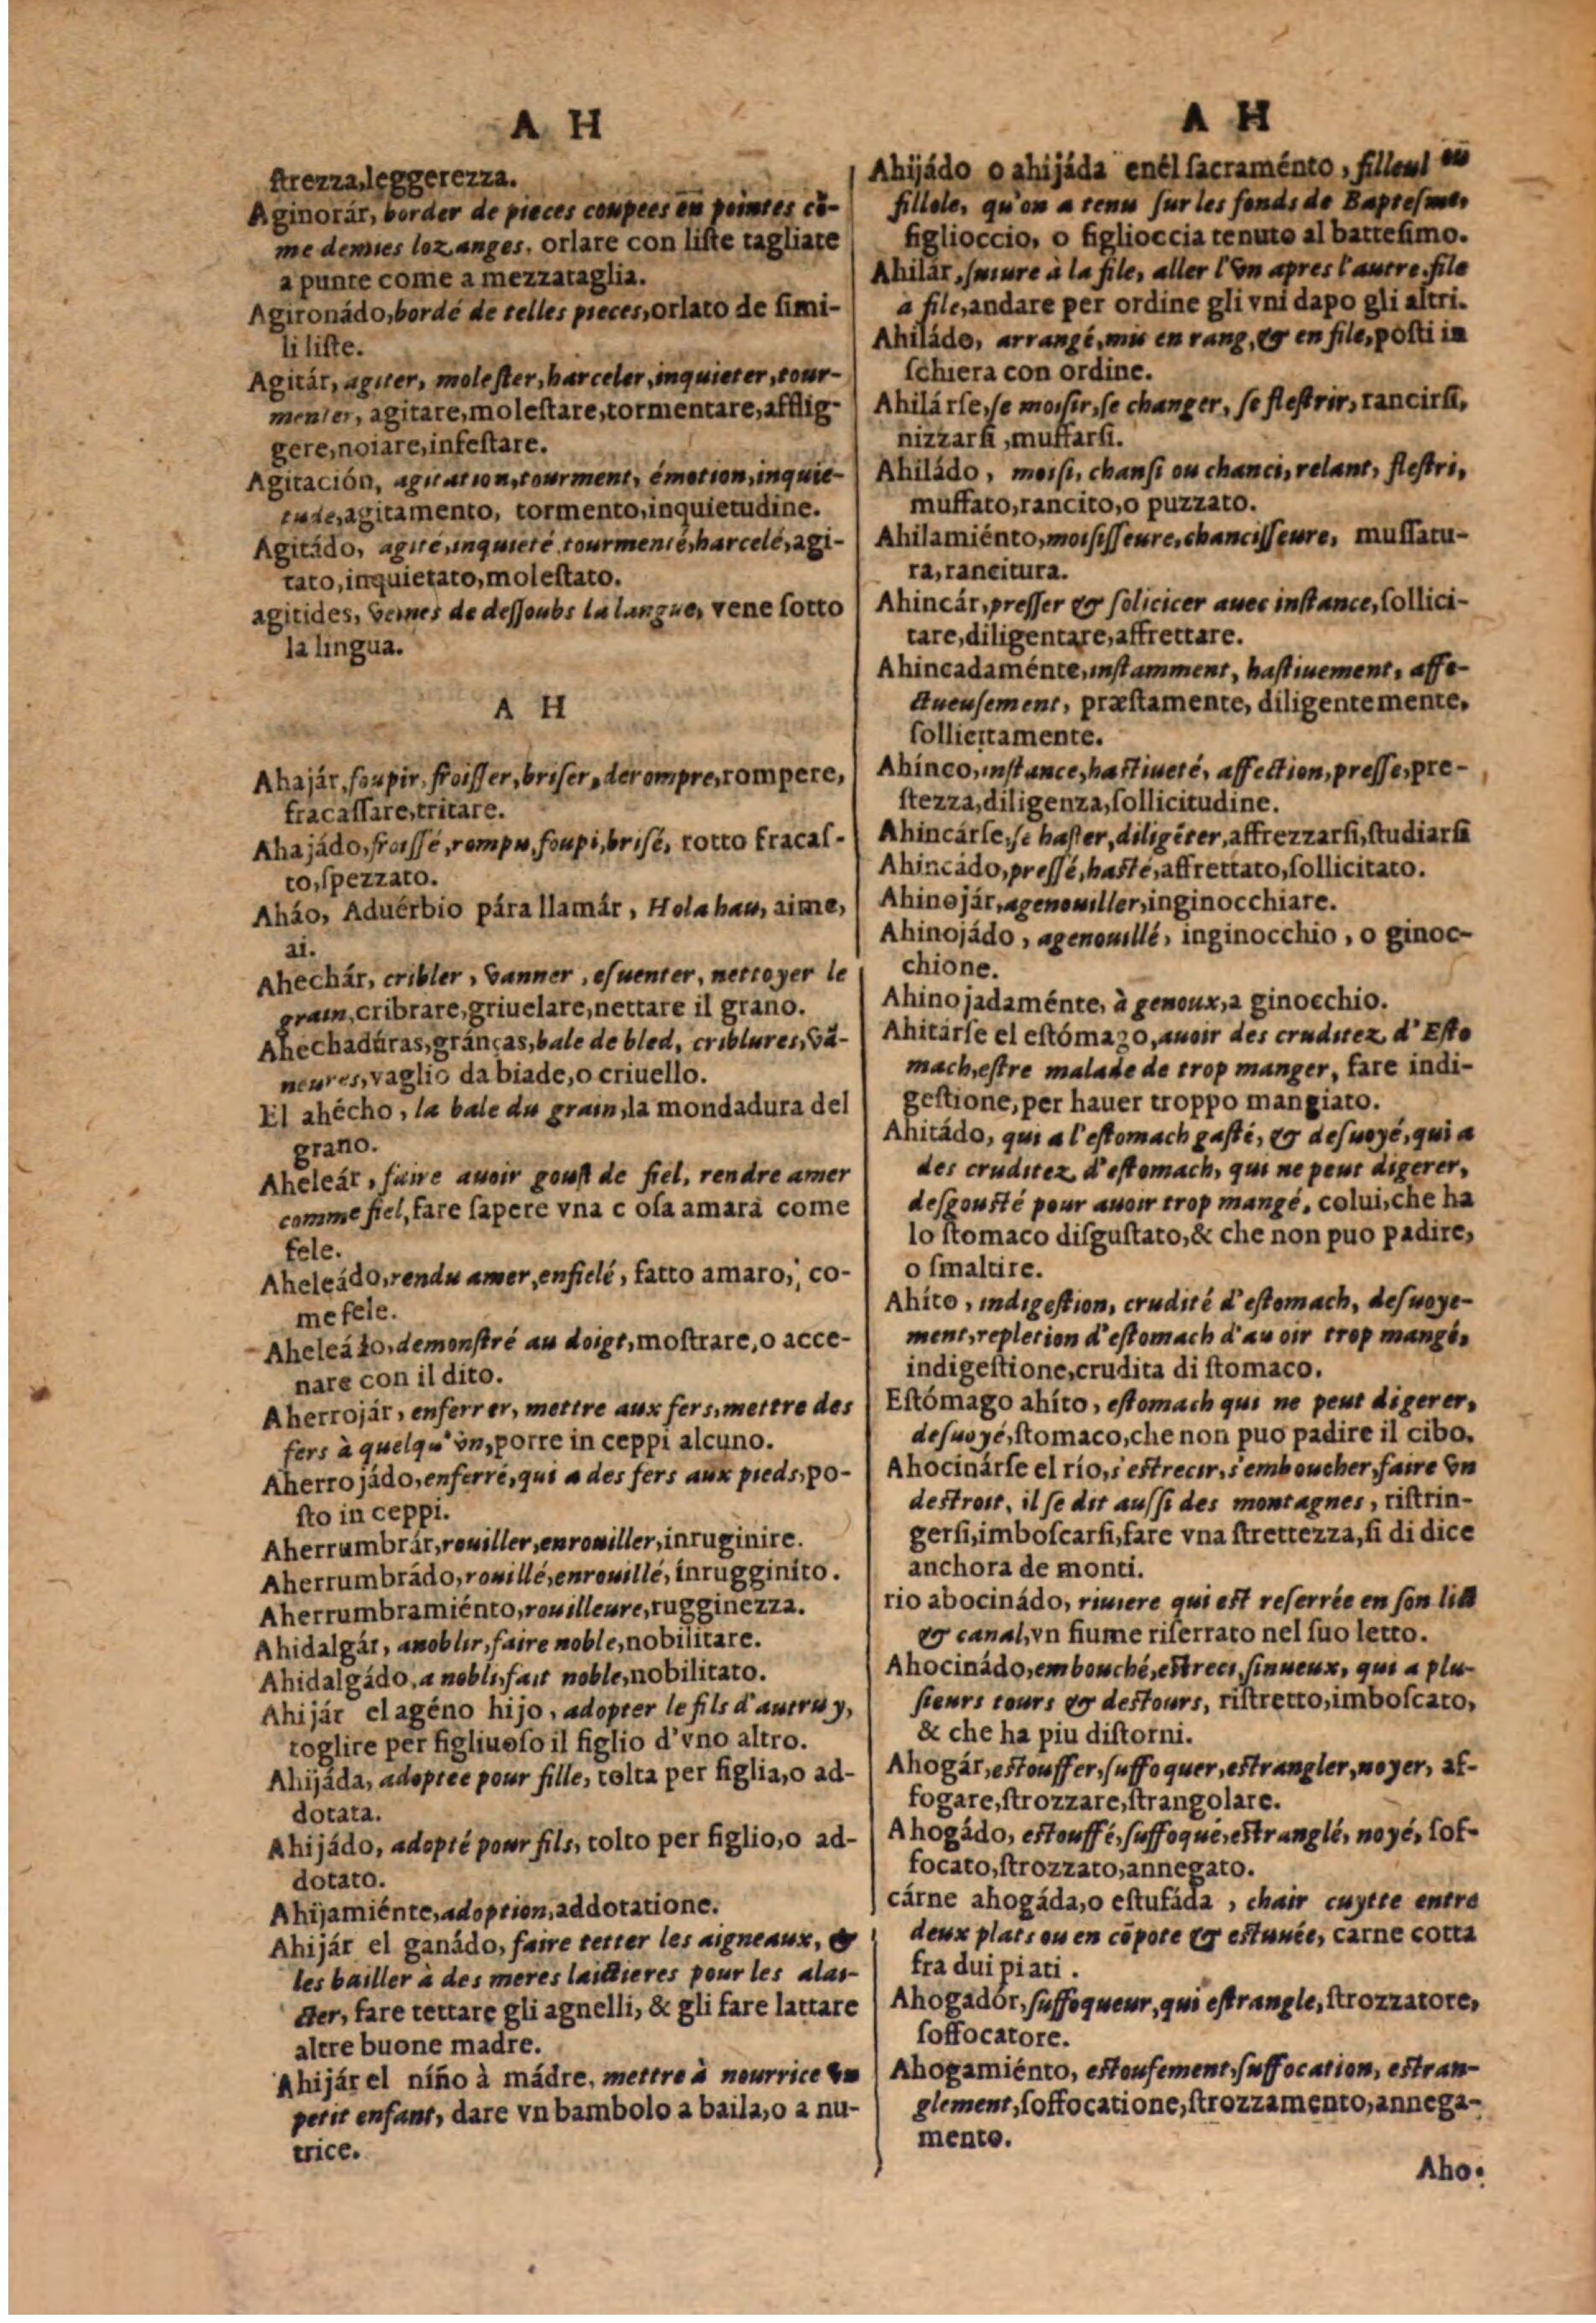 A H
ſtrezza,leggerezza.
Aginorár, border de pieces coupees en pointes cõ-
me demies lozanges, orlare con liſte tagliate
a punte come a mezzataglia.
Agironádo,bordé de telles pieces,orlato de ſimi-
li liſte.
Agitár, agiter, moleſter,harceler,inquieter,tour-
menter, agitare,moleſtare,tormentare,afflig-
gere,noiare,infeſtare.
Agitación, agitation,tourment, émotion,inquie-
tude,agitamento, tormento,inquietudine.
Agitádo, agité,inquieté,tourmenté,harcelé,agi-
tato,inquietato,moleſtato.
agitides, veines de deſſoubs la langue, vene ſotto
la lingua.
A H
Ahajár,foupir,froiſſer,briſer,derompre,rompere,
fracaſſare,tritare.
Ahajádo,froiſſé,rompu,foupi,briſé, rotto fracaſ-
to,ſpezzato.
Aháo, Aduérbio pára llamár, Hola hau, aime,
ai.
Ahechár, cribler, vanner, eſuenter, nettoyer le
grain,cribrare,griuelare,nettare il grano.
Ahechadúras,gránças,bale de bled, criblures,vã-
neures,vaglio da biade,o criuello.
El ahécho, la bale du grain,la mondadura del
grano.
Aheleár, faire auoir gouſt de fiel, rendre amer
comme fiel,fare ſapere vna c oſa amara come
fele.
Aheleádo,rendu amer,enfielé, fatto amaro, co-
me fele.
Aheleádo,demonſtré au doigt,moſtrare,o acce-
nare con il dito.
Aherrojár, enferrer, mettre aux fers,mettre des
fers à quelqu'vn,porre in ceppi alcuno.
Aherrojádo,enferré,qui a des fers aux pieds,po-
ſto in ceppi.
Aherrumbrár,rouiller,enrouiller,inruginire.
Aherrumbrádo,rouillé,enrouillé,inrugginito.
Aherrumbramiénto,rouilleure,rugginezza.
Ahidalgár, anoblir,faire noble,nobilitare.
Ahidalgádo,a nobli,fait noble,nobilitato.
Ahijár el agéno hijo, adopter le fils d'autruy,
toglire per figliuoſo il figlio d'vno altro.
Ahijáda, adoptee pour fille, tolta per figlia,o ad-
dotata.
Ahijádo, adopté pour fils, tolto per figlio,o ad-
dotato.
Ahijamiénte,adoption,addotatione.
Ahijár el ganádo, faire tetter les aigneaux, &
les bailler à des meres laictieres pour les alai-
cter, fare tettare gli agnelli, & gli fare lattare
altre buone madre.
Ahijár el níño à mádre, mettre à nourrice vn
petit enfant, dare vn bambolo a baila,o a nu-
trice.
A H
Ahijádo o ahijáda enél ſacraménto, filleul ou
fillole, qu'on a tenu ſur les fonds de Bapteſme,
figlioccio, o figlioccia tenuto al batteſimo.
Ahilár,ſuiure à la file, aller l'vn apres l'autre,file
a file,andare per ordine gli vni dapo gli altri.
Ahiládo, arrangé,mis en rang,& en file,poſti in
ſchiera con ordine.
Ahilárſe,ſe moiſir,ſe changer, ſe fleſtrir, rancirſi,
nizzarſi,muffarſi.
Ahiládo, moiſi, chanſi ou chanci, relant, fleſtri,
muffato,rancito,o puzzato.
Ahilamiénto,moiſiſſeure,chanciſſeure, muffatu-
ra,rancitura.
Ahincár,preſſer & ſolicicer auec inſtance,ſollici-
tare,diligentare,affrettare.
Ahincadaménte,inſtamment, haſtiuement, affe-
ctueuſement, præſtamente, diligentemente,
ſollicitamente.
Ahínco,inſtance,haſtiueté, affection,preſſe,pre-
ſtezza,diligenza,ſollicitudine.
Ahincárſe,ſe haſter,diligẽter,affrezzarſi,ſtudiarſi
Ahincádo,preſſé,haſté,affrettato,ſollicitato.
Ahinojár,agenouiller,inginocchiare.
Ahinojádo, agenouillé, inginocchio, o ginoc-
chione.
Ahinojadaménte, à genoux,a ginocchio.
Ahitárſe el eſtómago,auoir des cruditez d'Eſto
mach,eſtre malade de trop manger, fare indi-
geſtione,per hauer troppo mangiato.
Ahitádo, qui a l'eſtomach gaſté, & deſuoyé,qui a
des cruditez d'eſtomach, qui ne peut digerer,
deſgouſté pour auoir trop mangé, colui,che ha
lo ſtomaco diſguſtato,& che non puo padire,
o ſmaltire.
Ahíto, indigeſtion, crudité d'eſtomach, deſuoye-
ment,repletion d'eſtomach d'au oir trop mangé,
indigeſtione,crudita di ſtomaco.
Eſtómago ahíto, eſtomach qui ne peut digerer,
deſuoyé,ſtomaco,che non puo padire il cibo.
Ahocinárſe el río,s'eſtrecir,s'emboucher,faire vn
deſtroit, il ſe dit auſſi des montagnes, riſtrin-
gerſi,imboſcarſi,fare vna ſtrettezza,ſi di dice
anchora de monti.
rio abocinádo, riuiere qui eſt reſerrée en ſon lict
& canal,vn fiume riſerrato nel ſuo letto.
Ahocinádo,embouché,eſtreci,ſinueux, qui a plu-
ſieurs tours & deſtours, riſtretto,imboſcato,
& che ha piu diſtorni.
Ahogár,eſtouffer,ſuffoquer,eſtrangler,noyer, af-
fogare,ſtrozzare,ſtrangolare.
Ahogádo, eſtouffé,ſuffoqué,eſtranglé, noyé, ſof-
focato,ſtrozzato,annegato.
cárne ahogáda,o eſtufáda, chair cuytte entre
deux plats ou en cõpote & eſtuuée, carne cotta
fra dui piati.
Ahogadór,ſuffoqueur,qui eſtrangle,ſtrozzatore,
ſoffocatore.
Ahogamiénto, eſtoufement,ſuffocation, eſtran-
glement,ſoffocatione,ſtrozzamento,annega-
mento.
Aho.